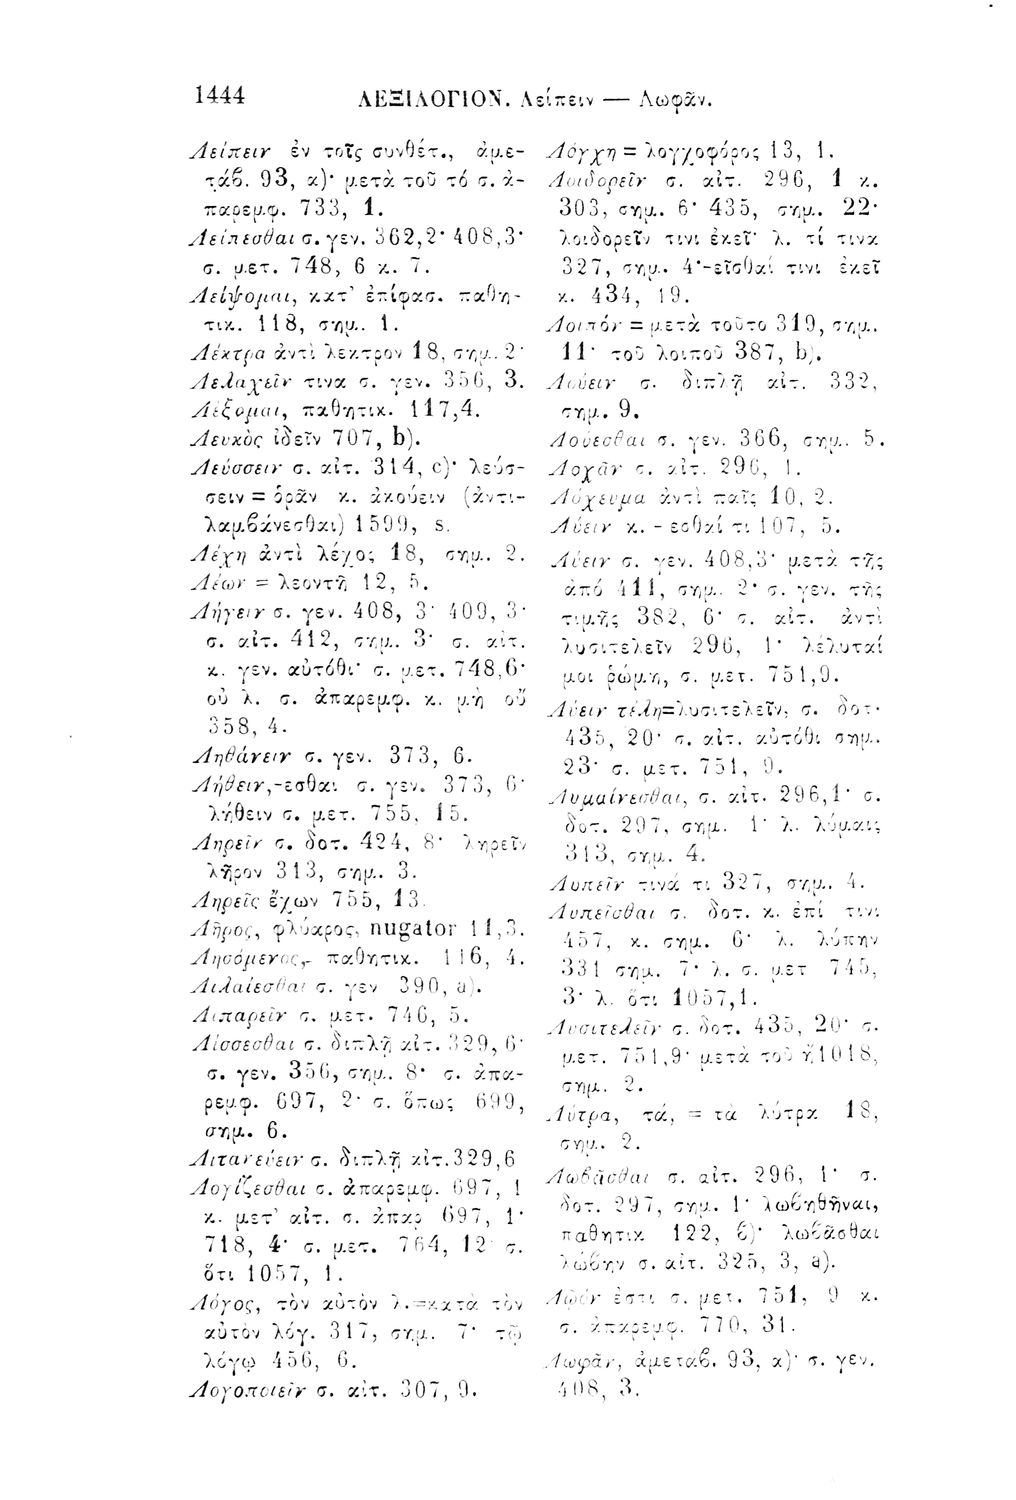 1444 ΛΕΞΙΛΟΓΙΟΝ. Λείπειν — Λωφᾶν.
Λείπειν ἐν τοῖς συνθέτ., ἀμε-
τάϐ. 93, α)· μετὰ τοῦ τό σ. ἀ-
παρεμφ. 733, 1.
Λείπεσθαι σ. γεν. 362,2· 408,3·
σ. μετ. 748, 6 κ. 7.
Λείψομαι, κατ' ἐπίφασ. παθη-
τικ. 118, σημ. 1.
Λέκτρα ἀντὶ λεκτρον 18, σημ. 2·
Λελαχεῖν τινα σ. γεν. 356, 3.
Λέξομαι, παθητικ. 117,4.
Λευκὸς ἰδεῖν 707, b).
Λεύσσειν σ. αἰτ. 314, c)· λεύσ-
σειν = ὁρᾶν κ. ἀκούειν (ἀντι-
λαμϐάνεσθαι) 1599, s.
Λέχη ἀντὶ λέχος 18, σημ. 2.
Λέων = λεοντῆ 12, 5.
Λήγειν σ. γεν. 408, 3· 409, 3·
σ. αἰτ. 412, σημ. 3· σ. αἰτ.
κ. γεν. αὐτόθι· σ. μετ. 748,6·
οὐ λ. σ. ἀπαρεμφ. κ. μὴ οὔ
358, 4.
Ληθάνειν σ. γεν. 373, 6.
Λήθειν,-εσθαι σ. γεν. 373, 6·
λήθειν σ. μετ. 755, 15.
Ληρεῖν σ. δοτ. 424, 8· ληρεῖν
λῆρον 313, σημ. 3.
Ληρεῖς ἔχων 755, 13.
Λῆρος, φλύαρος, nugator 11,3.
Λησόμενος, παθητικ. 116, 4.
Λιλαίεσθαι σ. γεν 390, a).
Λιπαρεῖν σ. μετ. 746, 5.
Λίσσεσθαι σ. διπλῆ αἰτ. 329, 6·
σ. γεν. 356, σημ. 8· σ. ἀπα-
ρεμφ. 697, 2· σ. ὅπως 699,
σημ. 6.
Λιτανεύειν σ. διπλῆ αἰτ. 329,6
Λογίζεσθαι σ. ἀπαρεμφ. 697, 1
κ. μετ' αἰτ. σ. ἀπαρ 697, 1·
718, 4· σ. μετ. 764, 12· σ.
ὅτι 1057, 1.
Λόγος, τὸν αὐτὸν λ.=κατὰ τὸν
αὐτὸν λόγ. 317, σημ. 7· τῷ
λόγῳ 456, 6.
Λογοποιεῖν σ. αἰτ. 307, 9.
Λόγχη = λογχοφόρος 13, 1.
Λοιδορεῖν σ. αἰτ. 296, 1 κ.
303, σημ. 6· 435, σημ. 22·
λοιδορεῖν τινι ἐκεῖ· λ. τί τινα
327, σημ. 4·-εῖσθαί τινι ἐκεῖ
κ. 434, 19.
Λοιπόν = μετὰ τοῦτο 319, σημ.
11· τοῦ λοιποῦ 387, b).
Λούειν σ. διπλῆ αἰτ. 332,
σημ. 9.
Λούεσθαι σ. γεν. 366, σημ. 5.
Λοχᾶν σ. αἰτ. 296, 1.
Λόχευμα ἀντὶ παῖς 10, 2.
Λύειν κ. -εσθαί τι 107, 5.
Λύειν σ. γεν. 408,3· μετὰ τῆς
ἀπό 411, σημ. 2· σ. γεν. τῆς
τιμῆς 382, 6· σ. αἰτ. ἀντὶ
λυσιτελεῖν 296, 1· λέλυταί
μοι ῥώμη, σ. μετ. 751,9.
Λύειν τέλη=λυσιτελεῖν, σ. δοτ·
435, 20· σ. αἰτ. αὐτόθι σημ.
23· σ. μετ. 751, 9.
Λυμαίνεσθαι, σ. αἰτ. 296,1· σ.
δοτ. 297, σημ. 1· λ. λύμαις
313, σημ. 4.
Λυπεῖν τινά τι 327, σημ. 4.
Λυπεῖσθαι σ. δοτ. κ. ἐπί τινι
457, κ. σημ. 6· λ. λύπην
331 σημ. 7· λ. σ. μετ 745,
3· λ. ὅτι 1057,1.
Λυσιτελεῖν σ. δοτ. 435, 20· σ.
μετ. 751,9· μετὰ τοῦ ἤ 1018,
σημ. 2.
Λύτρα, τά, = τὰ λύτρα 18,
σημ. 2.
Λωϐᾶσθαι σ. αἰτ. 296, 1· σ.
δοτ. 297, σημ. 1· λωϐηθῆναι,
παθητικ 122, ϐ)· λωϐᾶσθαι
λώϐην σ. αἰτ. 325, 3, a).
Λῷόν ἐστι σ. μετ. 751, 9 κ.
σ. ἀπαρεμφ. 770, 31.
Λωφᾶν, ἀμεταϐ. 93, α)· σ. γεν.
408, 3.